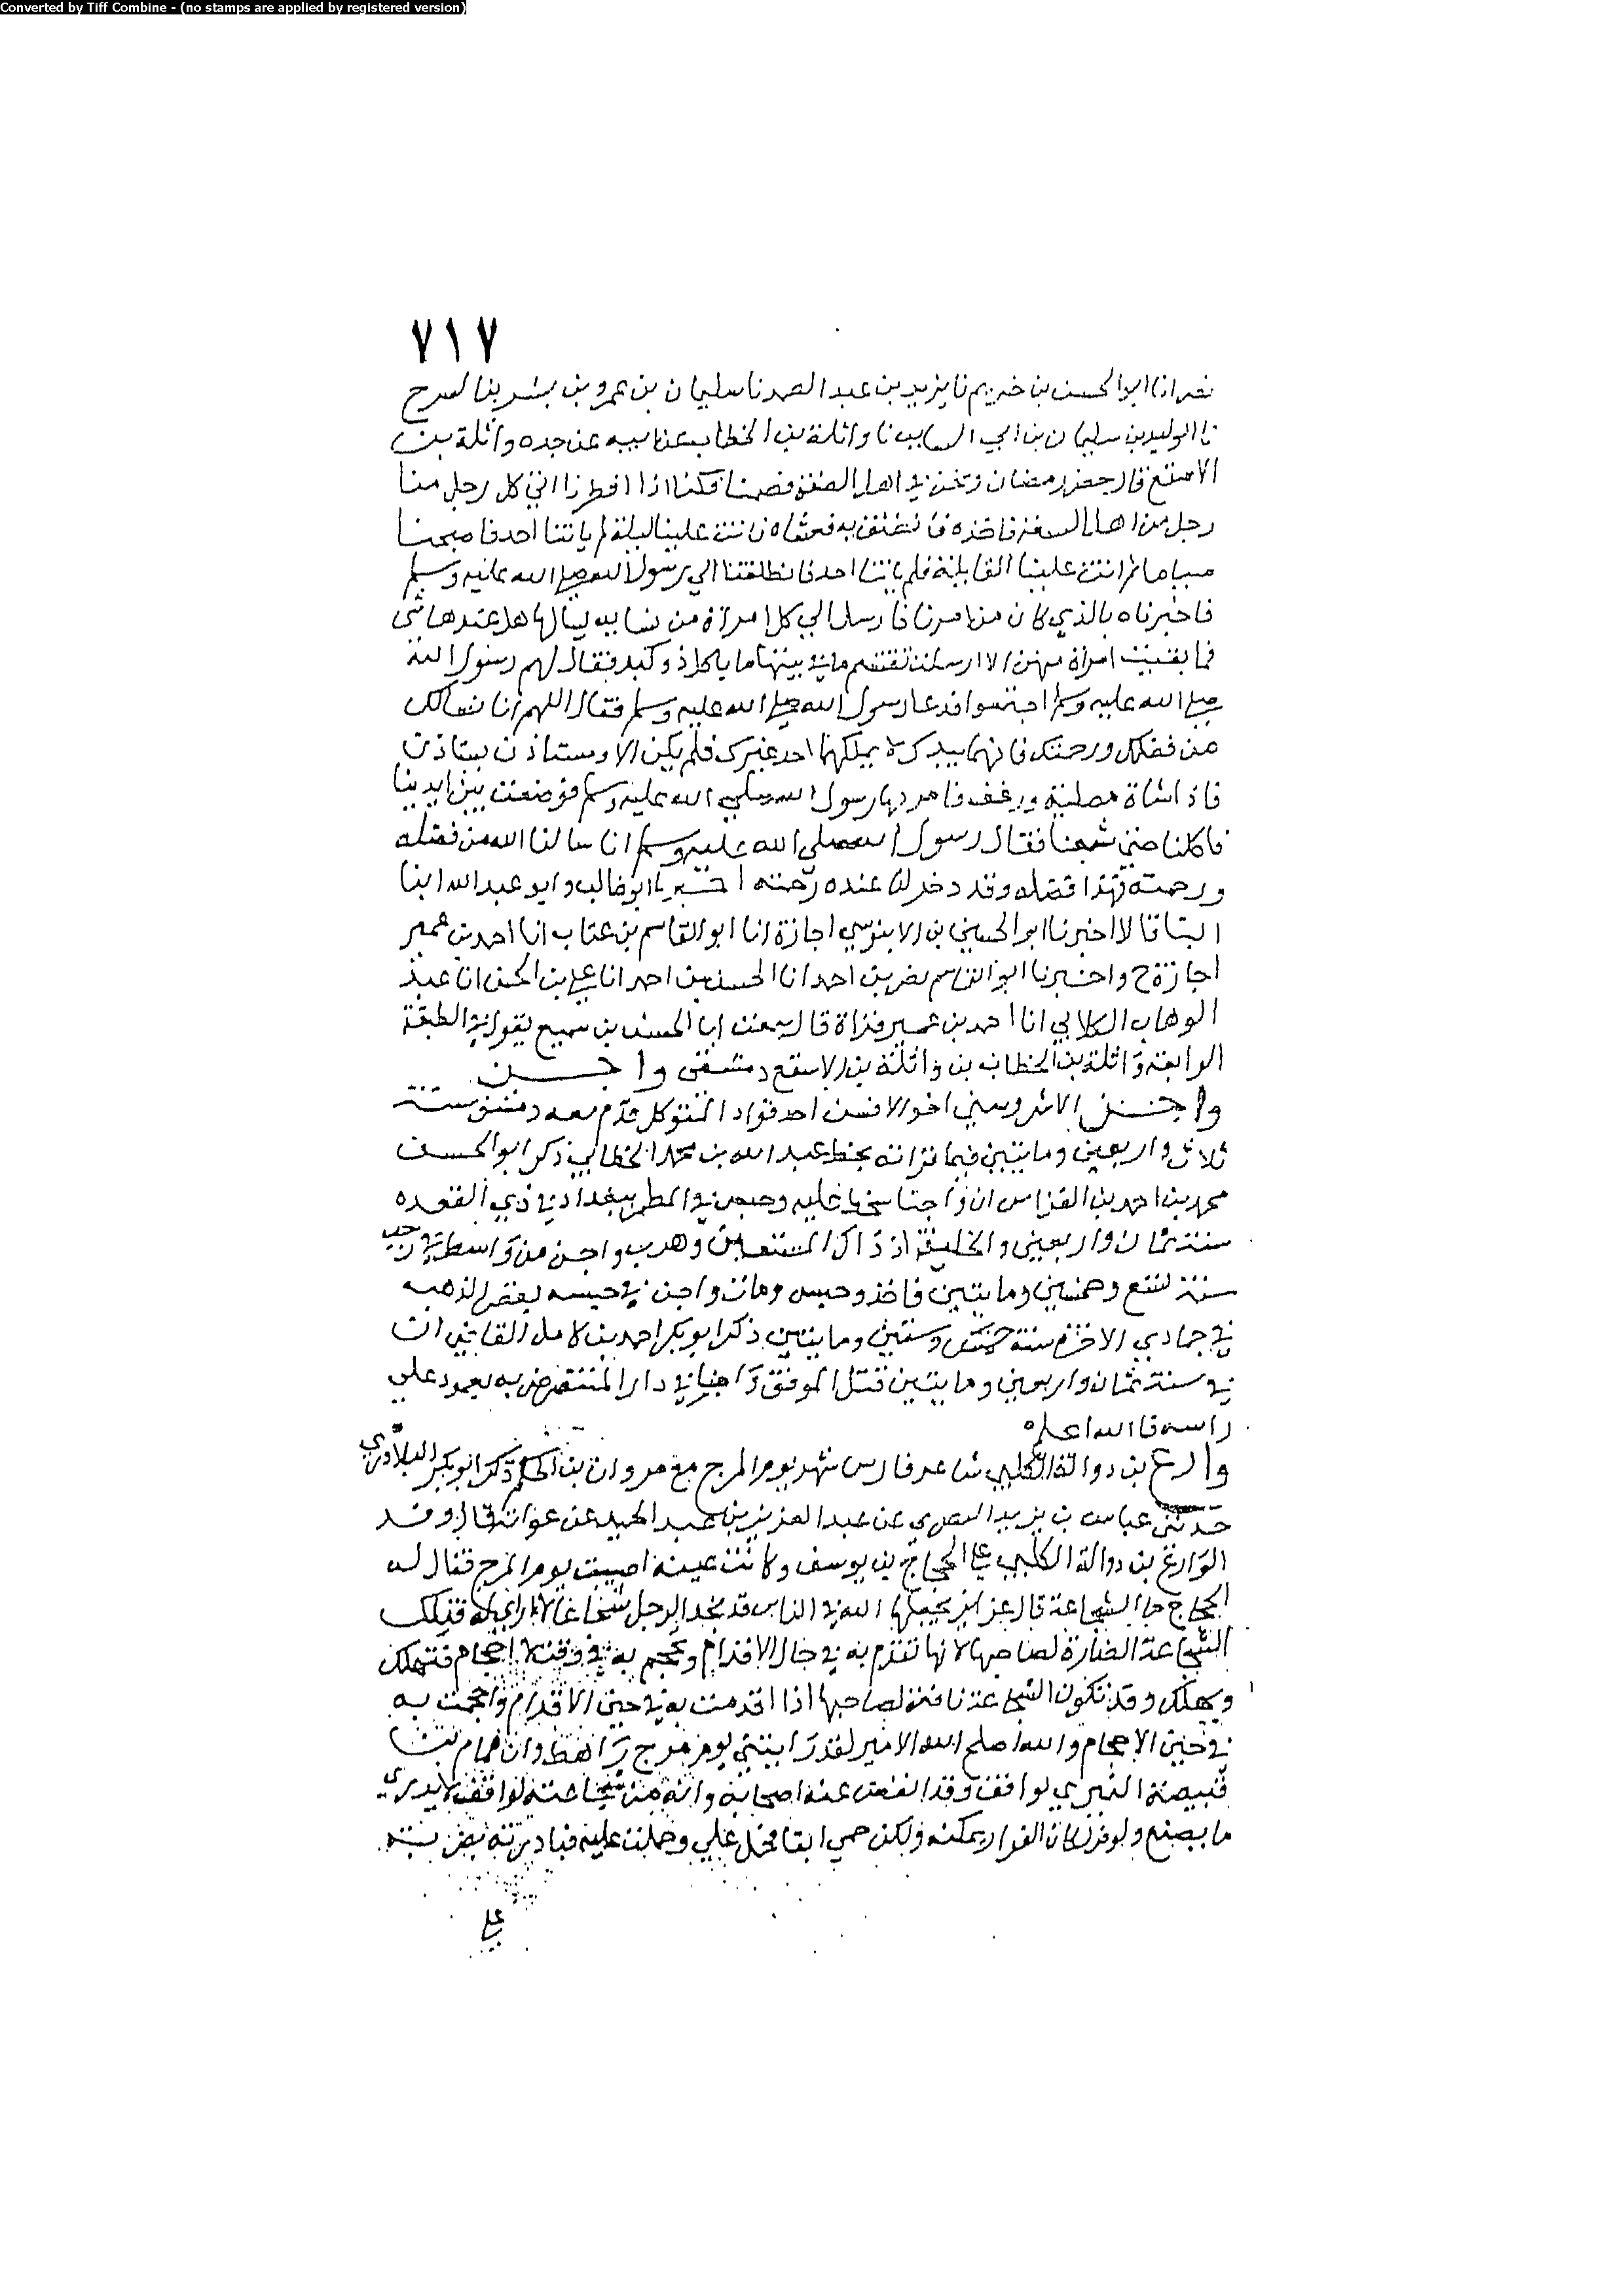 Converted by Tiff Combine - (no stamps are applied by registered version)
٧١٧
نصر انا ابو الحسن بن خريم نا يزيد بن عبد الصمد نا سليمان بن عمرو بن بشر بن السرح
نا الوليد بن سليمان بن ابي السايب نا واثلة بن الخطاب عن ابيه عن جده واثلة بن
الاسقع قال حضر رمضان ونحن في اهل الصفة فصمنا فكنا اذا افطرنا اتى كل رجل منا
رجل من اهل السعة فاخذه فانطلق به فعشاه فاتت علينا ليلة لم ياتنا احد فاصبحنا
صياما ثم اتت علينا القابلة فلم ياتنا احد فانطلقنا الي رسول الله صلى الله عليه وسلم
فاخبرناه بالذي كان من امرنا فارسل الي كل امراة من نسايه يسالها هل عندها شى
فما بقيت امراة منهن الا ارسلت تقسم ما في بيتها ما ياكل ذو كبد فقال لهم رسول الله
صلى الله عليه وسلم اجتمعوا فدعا رسول الله صلى الله عليه وسلم فقال اللهم انا نسالك
من فضلك ورحمتك فانهما بيدك لا يملكهما احد غيرك فلم يكن الا ومستاذن يستاذن
فاذا شاة مصلية ورغف فامر بها رسول الله صلى الله عليه وسلم فوضعت بين ايدينا
فاكلنا حتى شبعنا فقال رسول الله صلى الله عليه وسلم انا سالنا الله من فضله
ورحمته فهذا فضله وقد دخر لنا عنده رحمته اخبرنا ابو غالب وابو عبد الله ابنا
البنا قالا اخبرنا ابو الحسين بن الابنوسي اجازة انا ابو القاسم بن عتاب انا احمد بن عمير
اجازة ح واخبرنا ابو القاسم نصر بن احمد انا الحسن بن احمد انا علي بن الحسن انا عبد
الوهاب الكلابي انا احمد بن عمير قراة قال سمعت ابا الحسن بن سميع يقول في الطبقة
الرابعة واثلة بن الخطاب بن واثلة بن الاسقع دمشقى واجن
واجن الاشروسني اخو الافشين احد قواد المتوكل قدم معه دمشق سنة
ثلاث واربعين ومايتين فيما قراته بخط عبد الله بن محمد الخطابي ذكر ابو الحسن
محمد بن احمد بن القواس ان واجنا سخط عليه وحبس في المطبق ببغداد في ذي القعده
سنة ثمان واربعين والخليفة اذ ذاك المستعين وهرب واجن من واسط في رجب
سنة تسع وخمسين ومايتين فاخذ وحبس ومات واجن في حبسه لبعض الذهبه
في جمادي الاخرة سنة خمس وستين ومايتين ذكر ابو بكر احمد بن كامل القاضي ان
في سنة ثمان واربعين ومايتين قتل الموفق واجنا في دار المنتصر ضربه بعمود علي
راسه فالله اعلم
وازع بن دوالة الكلبي شاعر فارس شهد يوم المرج مع مروان بن الحكم ذكر ابو بكر البلاذري
حدثني عباس بن يزيد البصري عن عبد العزيز بن عبد الحميد عن عوانة قال وفد
الوازع بن دوالة الكلبي على الحجاج بن يوسف وكانت عينه اصيبت يوم المرج فقال له
الحجاج ما الشجاعة قال غرايز يجعلها الله في الناس قد نجد الرجل شجاعا لا راي له فتلك
الشجاعة الضارة لصاحبها لانها تقدم به في حال الاقدام وتحجم به في وقت الاحجام فتهلك
ويهلك وقد تكون الشجاعة نافعة لصاحبها اذا اقدمت به في حين الاقدام واحجمت به
في حين الاحجام والله اصلح الله الامير لقد رايتني يوم مرج راهط وان همام بن
قبيصة النميري لواقف وقد انفض عنه اصحابه وانه من شجاعته لواقف لا يدري
ما يصنع ولو فر لكان الفرار يمكنه ولكن حمي انفا فحمل علي وحملت عليه فبادرته بضربته
علي